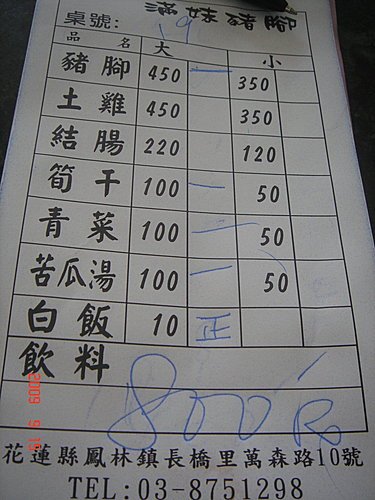 滿妹豬腳
桌號: 19
品名 大 小
豬腳 450 一 350
土雞 450 350
結腸 220 120
筍干 100 一 50
青菜 100 一 50
苦瓜湯 100 一 50
白飯 10 正
飲料
800
花蓮縣鳳林鎮長橋里萬森路10號
TEL:03-8751298